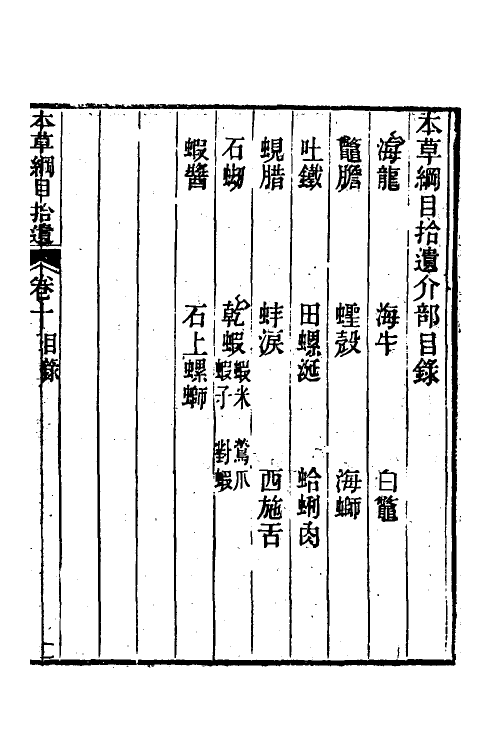 本草綱目拾遺介部目錄
海龍 海牛 白鼈
鼈膽 蟶殼 海螄
吐鐵 田螺涎 蛤蜊肉
蜆腊 蚌淚 西施舌
石𧉧 乾蝦蝦米鶩爪蝦子對蝦
蝦醬 石上螺螄
本草綱目拾遺 卷十 目錄